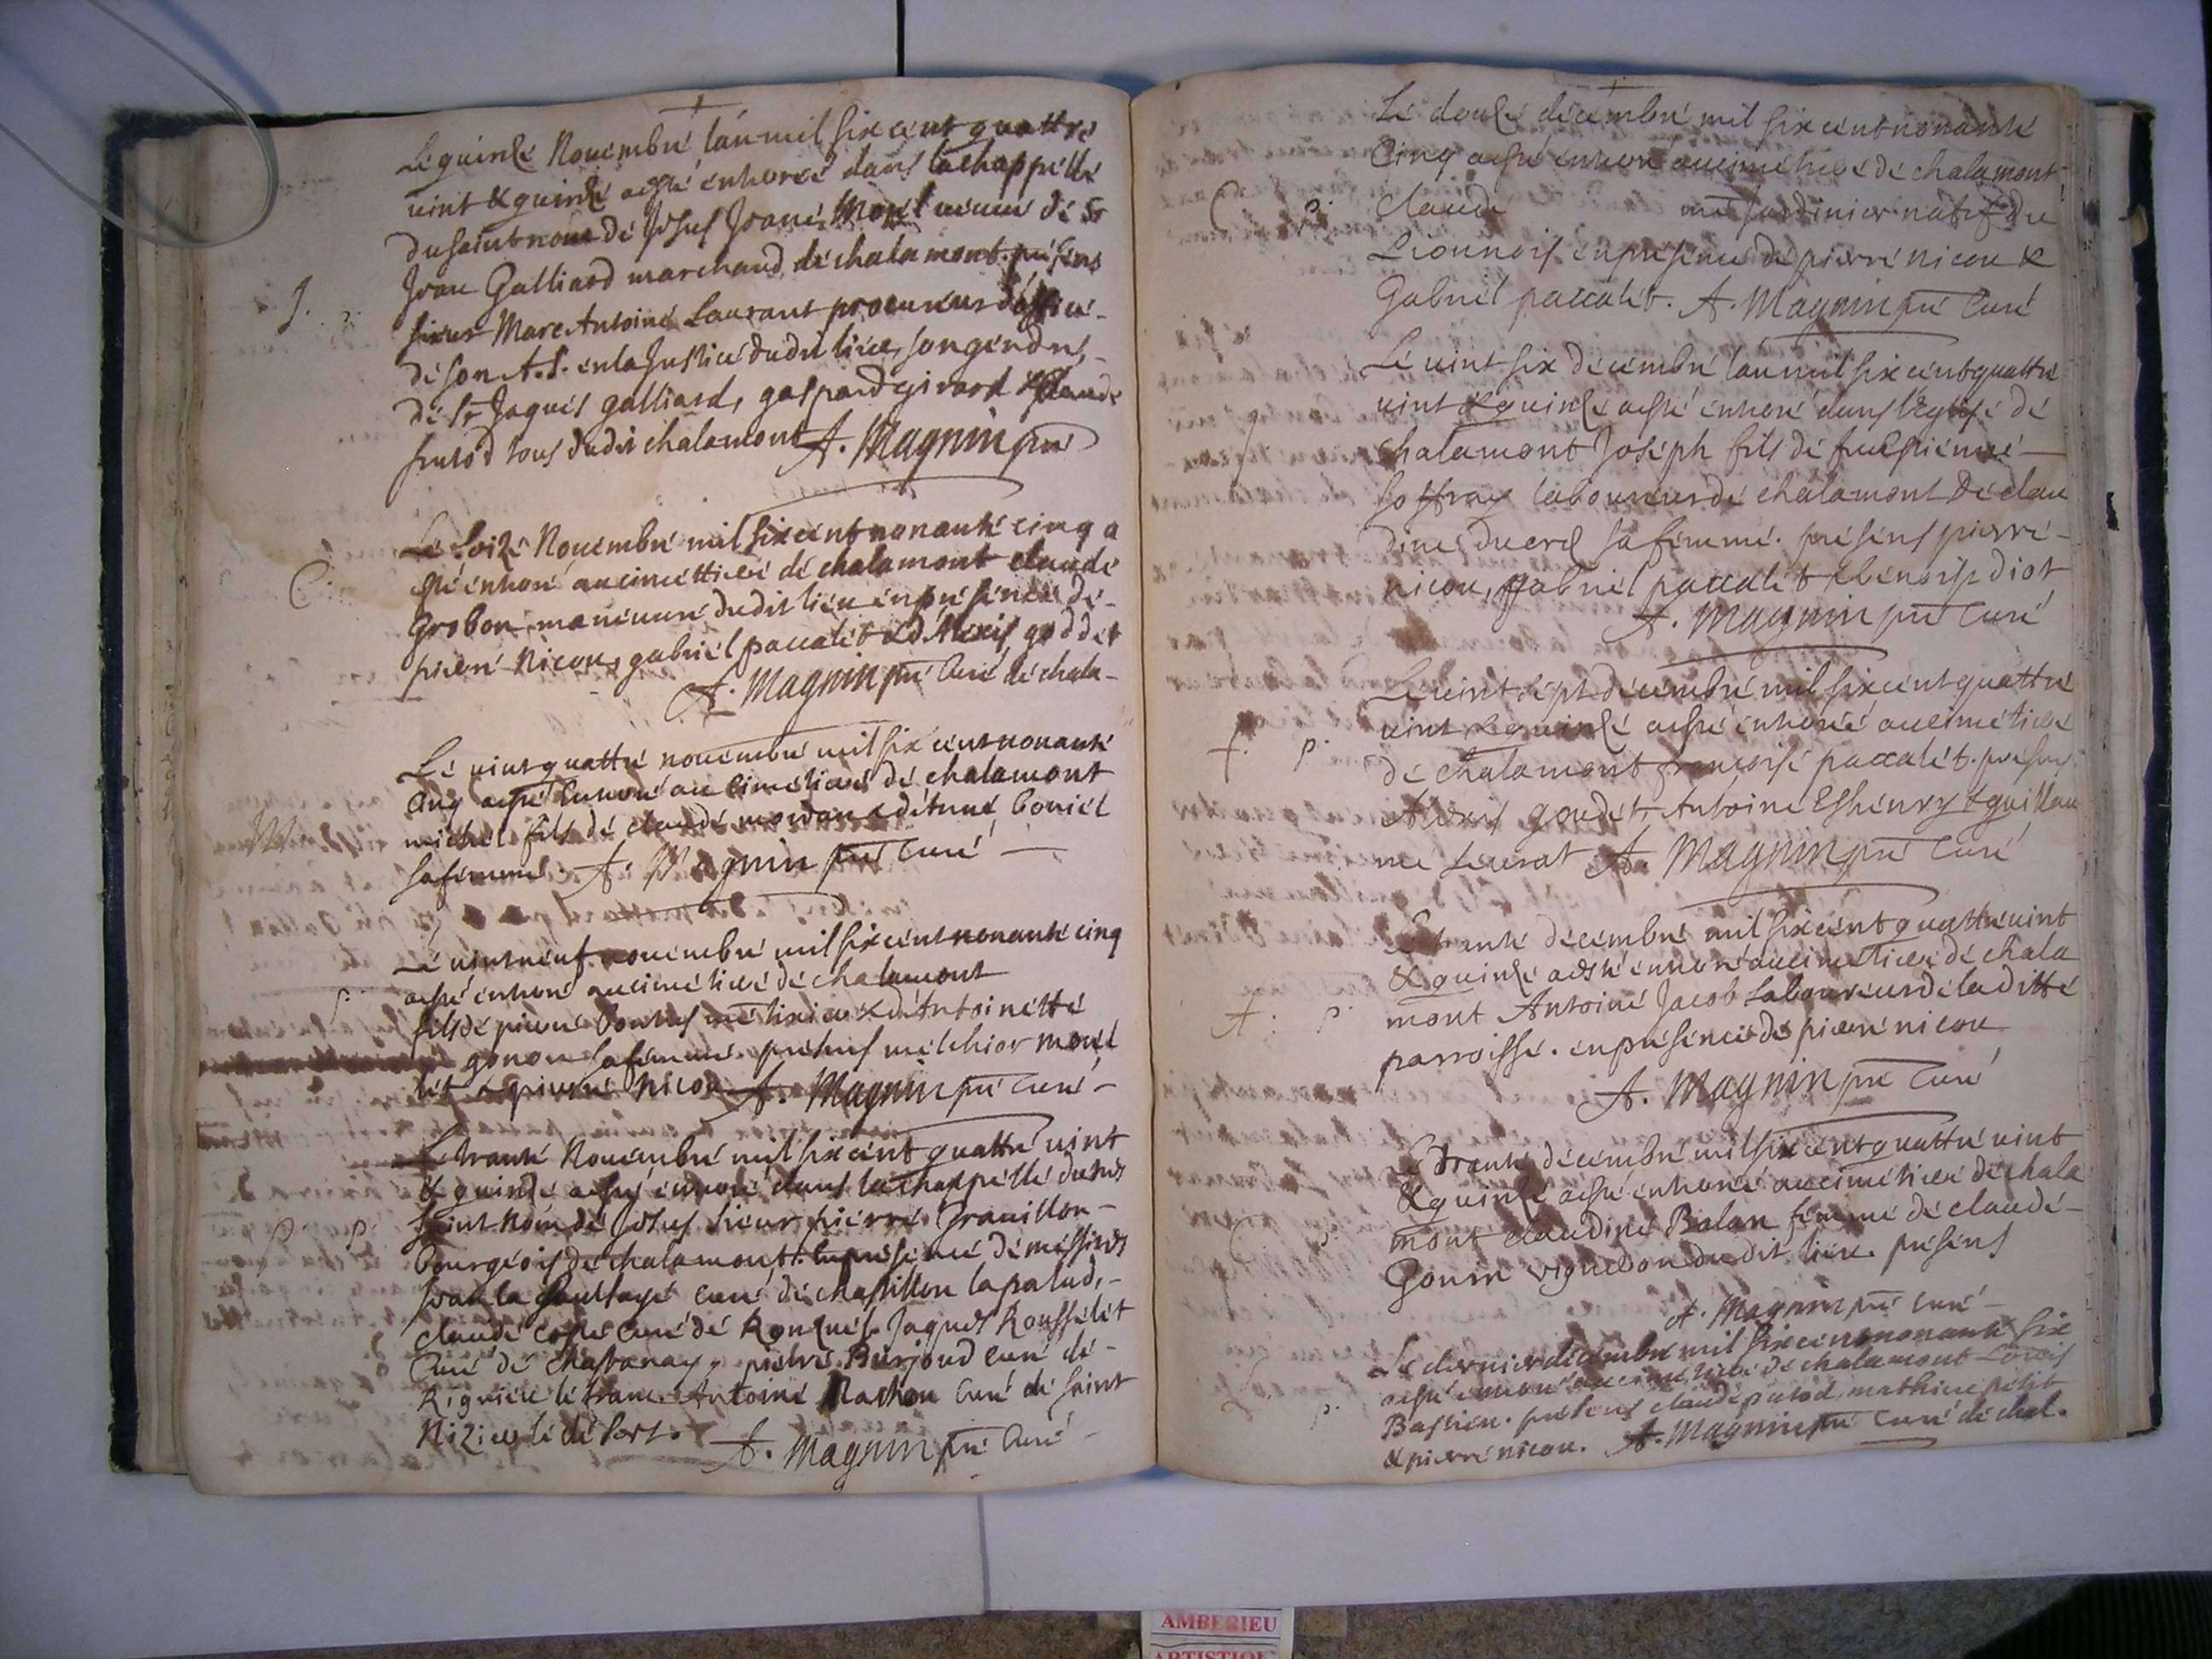 Le quinze Novembre l'an mil six cent quattre
vint & quinze a esté enterré dans la chappelle
du saint nom de Jesus Jeane Morel veuve de Sr
Jean Galliard marchand de chalamont. présens
J.
sieur Marc Antoine Laurant procureur d'office
de son A.S. en la Justice dudit lieu, son gendre,
de Sr Jaques galliard, gaspard girard & Claude
tous dudit chalamont A. Magnin pre
Le seize Novembre mil six cent nonante cinq a
C
esté enterré au cimettiere de chalamont claude
Grobon manieuvre dudit lieu en présence de
pierre Nicou, gabriel paccalet & d'Alexis goddet
A. Magnin pre Curé de chala-
Le vint quattre novembre mil six cent nonante
cinq a esté enterré au cimetiere de chalamont
M
michel fils de claude mordan & d'etiene boniel
sa femme. A. Magnin pre Curé
Le vint neuf novembre mil six cent nonante cinq
a esté enterré au cimetiere de chalamont
p.
fils de pierre me tixier & d'Antoinette
gonon sa femme. présens melchior morel
let & pierre Nicou A. Magnin pre Curé
Le trante Novembre mil six cent quattre vint
& quinze a esté enterré dans la chappelle du tres
P p
saint Nom de Jesus sieur pierre Grauillon
bourgeois de chalamont. en presence de messires
Jean la curé de chastillon la palud,
claude coste curé de Ronzuel. Jaques Rousselet
Curé de Chastanay, pierre Burjoud curé de
Rignieu le franc. Antoine Rachon Curé de saint
Nizier le desert. A. Magnin pre Curé
Le douze décembre mil six cent nonante
cinq a esté enterré au cimetiere de chalamont
C p.
claude me jardinier natif du
Lionnois en presence de pierre nicou &
Gabriel paccalet. A. Magnin pre Curé
Le vint six décembre l'an mil six cent quattre
vint & quinze a esté enterré dans l'eglise de
J
chalamont Joseph fils de feu pierre
Soffray laboureur de chalamont & de clau
dine sa femme. présens pierre
nicou, gabriel paccalet & benoist diot
A. Magnin pre Curé
Le vint sept décembre mil six cent quattre
f. p.
vint & quinze a esté enterré au cimetiere
de chalamont françoise paccalet. présens
Alexis goudet, Antoine & guillau
me A. Magnin pre Curé
Le trante décembre mil six cent quattre vint
& quinze a esté enterré au cimetiere de chala
A. p.
mont Antoine Jacob Laboureur de laditte
parroisse. en présence de pierre nicou
A. Magnin pre Curé
Le trante décembre mil six cent quattre vint
& quinze a esté enterré au cimetiere de chala
C p.
mont claudine Balan femme de claude
Gonin vigneron dudit lieu. présens
A. Magnin pre Curé
Le dernier décembre mil six cent nonante six
a esté enterré au cimetiere de chalamont Louis
L p.
Bastien. présens claude putod mathieu petit
& pierre nicou. A. Magnin pre Curé de chal.
AMBERIEU
ARTISTIQUE